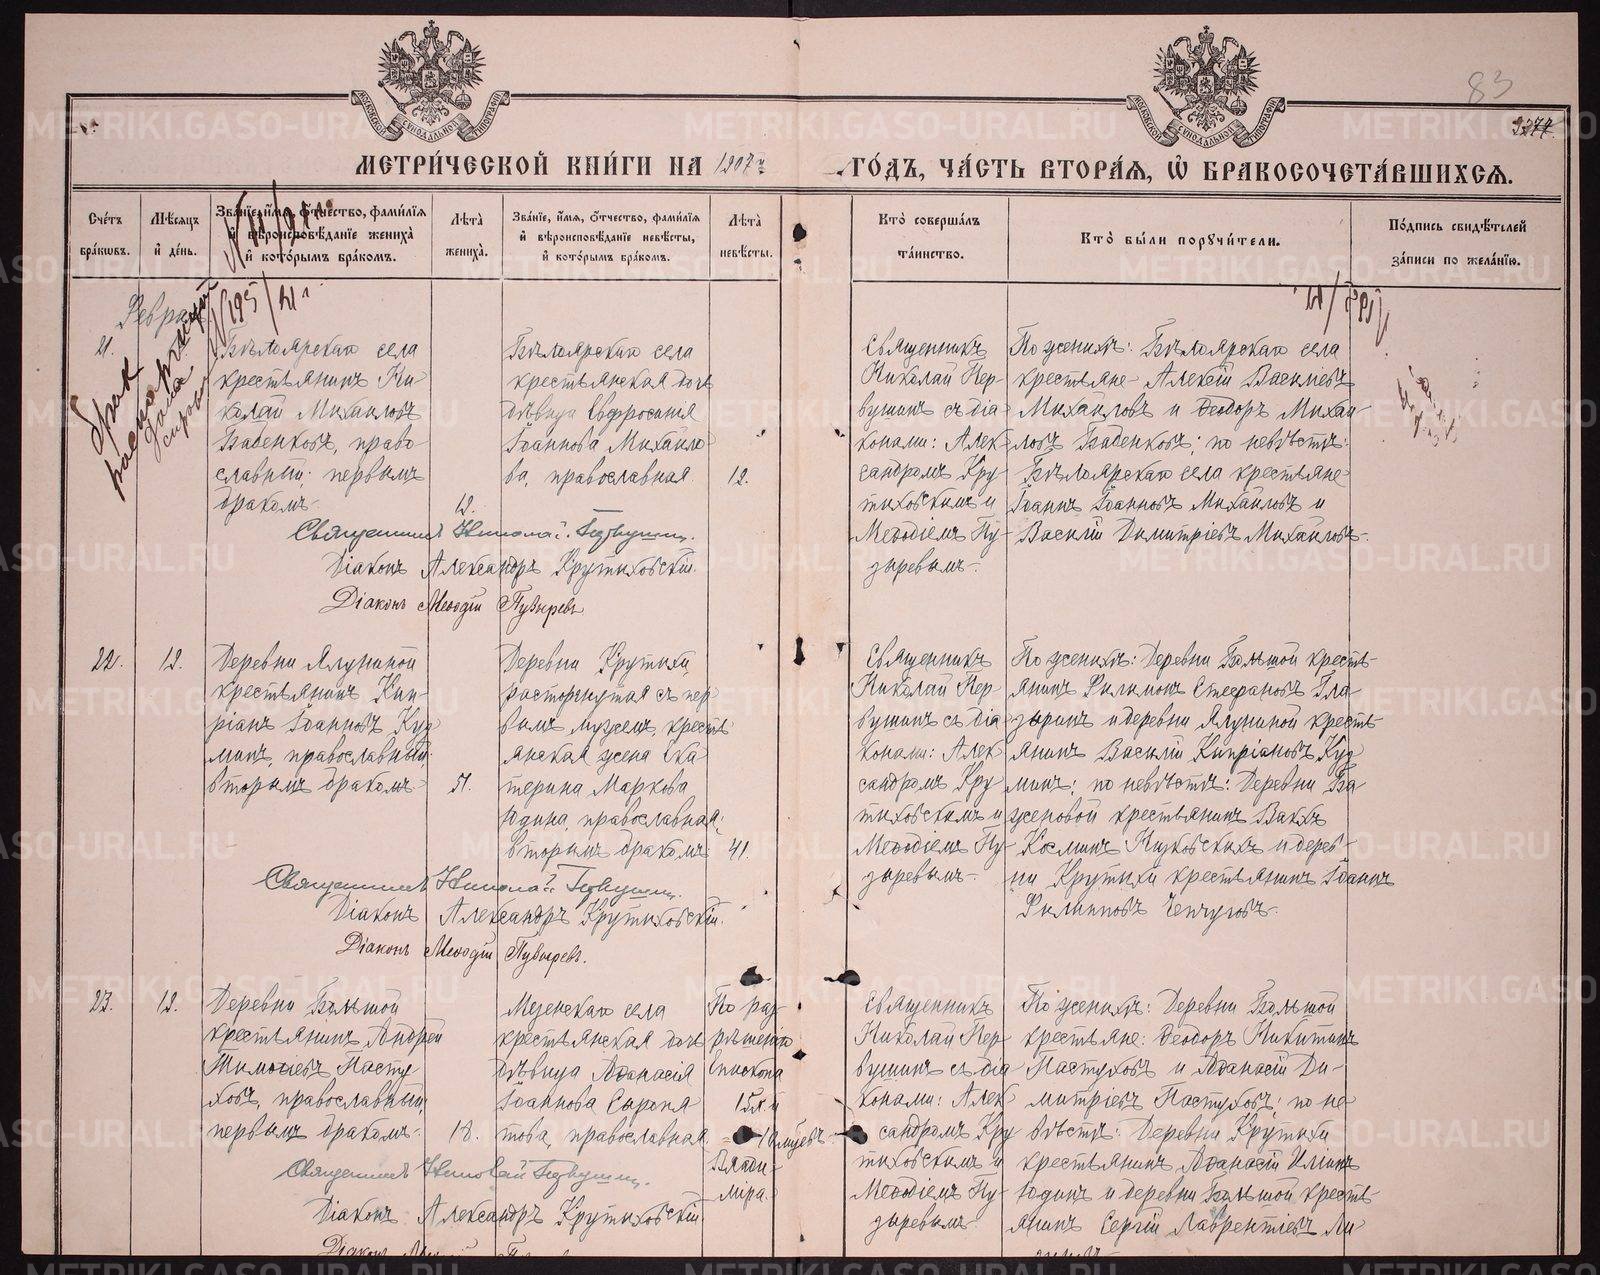 83
МЕТРИ́ЧЕСКОЙ КНИ́ГИ НА 1907й ГО́ДЪ, ЧА́СТЬ ВТОРА́Я, Ѿ БРАКОСОЧЕТА́ВШИХСЯ.
Сче́тъ бра́ковъ.
Мѣ́сяцъ и҆ де́нь.
Зва́нїе, и҆́мя, ѻ҆́тчество, фами́лїя и҆ вѣроисповѣ́данїе жениха̀ и҆ кото́рымъ бра́комъ.
Лѣ́та жениха̀.
Зва́нїе, и҆́мя, ѻ҆́тчество, фами́лїя и҆ вѣроисповѣ́данїе невѣ́сты, и҆ кото́рымъ бра́комъ.
Лѣ́та невѣ́сты.
Кто̀ соверша́лъ та́инство.
Кто̀ бы́ли поручи́тели.
По́дпись свидѣ́телей за́писи по жела́нїю.
Феврал
Брак расторгнутый
21.
Бѣлоярскаго села
крестьянинъ Ни-
колай Михаиловъ
Бабенковъ, право
славный; первымъ
бракомъ.
Бѣлоярскаго села
крестьянская дочь
дѣвица Евфросинія
Іоаннова Михаило
ва, православная
Священникъ
Николай Пер-
вушинъ съ діа-
конами: Алек-
сандромъ Кру-
тиховскимъ и
Меѳодіемъ Пу-
зыревымъ.
По женихѣ: Бѣлоярскаго села
крестьяне Алексій Васильевъ
Михаиловъ и Ѳеодоръ Михаи
ловъ Бабенковъ; по невѣстѣ:
Бѣлоярскаго села крестьяне
Іоаннъ Іоанновъ Михаиловъ и
Василій Димитріевъ Михаиловъ.
Священникъ Николай Первушинъ.
Діаконъ Александръ Крутиховскій.
Діаконъ Меѳодій Пузыревъ.
22. 12.
Деревни Ялуниной
крестьянинъ Кип-
ріанъ Іоанновъ Куд
минъ, православный;
вторымъ бракомъ.
51.
Деревни Крутихи,
расторгнутая съ пер
вымъ мужемъ, кресть
янская жена Ека
терина Маркова
Юдина, православная;
вторымъ бракомъ
41.
Священникъ
Николай Пер-
вушинъ съ діа
конами: Алек
сандромъ Кру-
тиховскимъ и
Меѳодіемъ Пу-
зыревымъ.
По женихѣ: Деревни Большой кресть-
янинъ Филимонъ Стефановъ Гла-
зыринъ и деревни Ялуниной кресть-
янинъ Василій Кипріановъ Куд
минъ; по невѣстѣ: Деревни Ба
женовой крестьянинъ Вакхъ
Косминъ и дерев-
ни Крутихи крестьянинъ Іоаннъ
Филипповъ Чепчуговъ.
Священникъ Николай Первушинъ.
Діаконъ Александръ Крутиховскій.
Діаконъ Меѳодій Пузыревъ.
23. 12.
Деревни Большой
крестьянинъ Андрей
Тимоѳеевъ Пасту
ховъ, православный;
первымъ бракомъ.
18.
Мезенскаго села
крестьянская дочь
дѣвица Аѳанасія
Іоаннова Сыропя
това, православная
По раз-
рѣшенію
Епископа
15 л. и
10 мѣсев.
Влади-
міра.
Священникъ
Николай Пер
вушинъ съ діа
конами: Алек
сандромъ Кру
тиховскимъ и
Меѳодіемъ Пу-
зыревымъ.
По женихѣ: Деревни Большой
крестьяне: Ѳеодоръ Никитинъ
Пастуховъ и Аѳанасій Ди-
митріевъ Пастуховъ; по не-
вѣстѣ: Деревни Крутихи
крестьянинъ Аѳанасій Иліинъ
Юдинъ и деревни Большой кресть-
янинъ Сергій Лаврентіевъ Ли
Священникъ Николай Первушинъ.
Діаконъ Александръ Крутиховскій.
METRIKI.GASO-URAL.RU